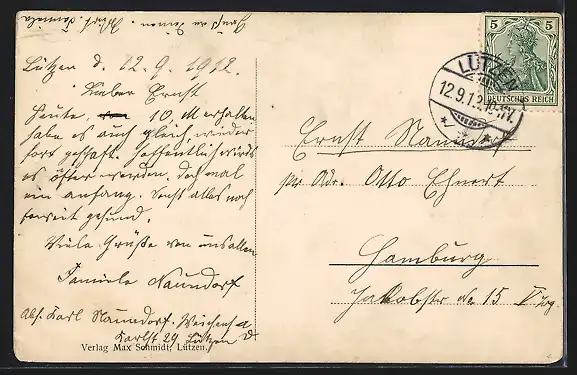 Lützen d. 12.9.1912.
Lieber Ernst
Heute, 10 M erhalten
habe es auch gleich wieder
fort geschafft. Hoffentlich wirds
es öfter werden, doch mal
ein anfang. Sonst alles noch
soweit gesund.
Viele Grüße von uns allen
Familie Naundorf
Abs. Karl Naundorf.
Karlst 29 Lützen
Verlag Max Schmidt, Lützen.
5 5
DEUTSCHES REICH
LÜTZEN
12.9.12.
Ernst Naundorf
pr Adr. Otto Ehnert
Hamburg
Jakobstr 15